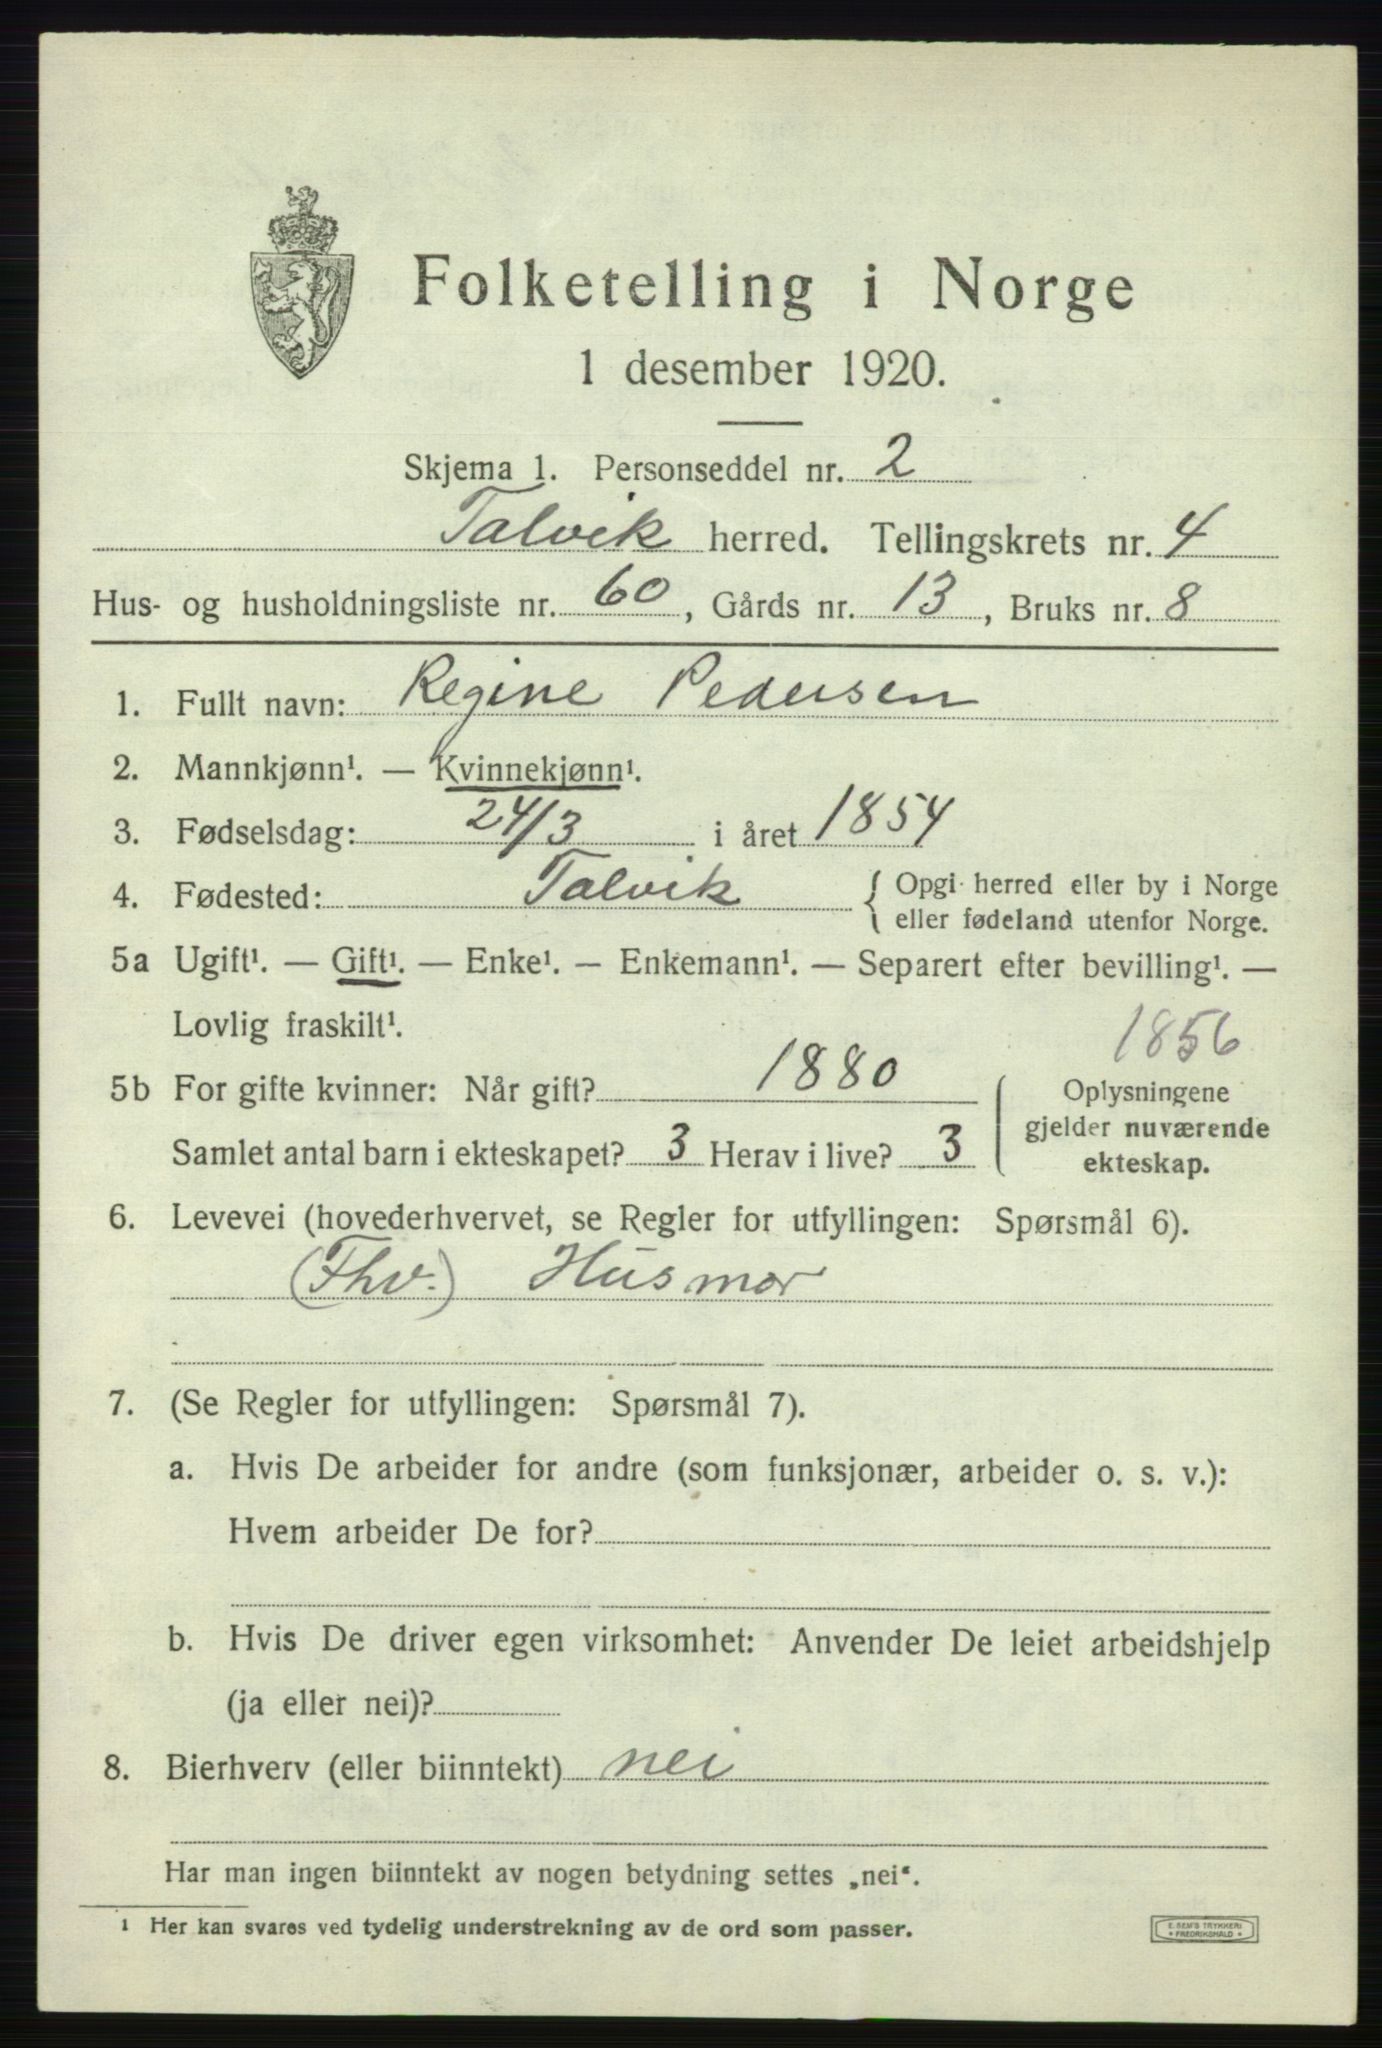 Folketelling i Norge
1 desember 1920.
Skjema 1. Personseddel nr. 2
Talvik herred. Tellingskrets nr. 4
Hus- og husholdningsliste nr. 60, Gårds nr. 13, Bruks nr. 8
1. Fullt navn: Regine Pedersen
2. Mannkjønn¹. — Kvinnekjønn¹.
3. Fødselsdag: 24/3 i året 1854
4. Fødested: Talvik { Opgi herred eller by i Norge
eller fødeland utenfor Norge.
5a Ugift¹. — Gift¹. — Enke¹. — Enkemann¹. — Separert efter bevilling¹. —
Lovlig fraskilt¹.
1856
5b For gifte kvinner: Når gift? 1880
Samlet antal barn i ekteskapet? 3 Herav i live? 3
Oplysningene
gjelder nuværende
ekteskap.
6. Levevei (hovederhvervet, se Regler for utfyllingen: Spørsmål 6).
(Fhv.) Husmor
7. (Se Regler for utfyllingen: Spørsmål 7).
a. Hvis De arbeider for andre (som funksjonær, arbeider o. s. v.):
Hvem arbeider De for?
b. Hvis De driver egen virksomhet: Anvender De leiet arbeidshjelp
(ja eller nei)?
8. Bierhverv (eller biinntekt) nei
Har man ingen biinntekt av nogen betydning settes „nei“.
¹ Her kan svares ved tydelig understrekning av de ord som passer.
E. SEM'S TRYKKERI
* FREDRIKSHALD *